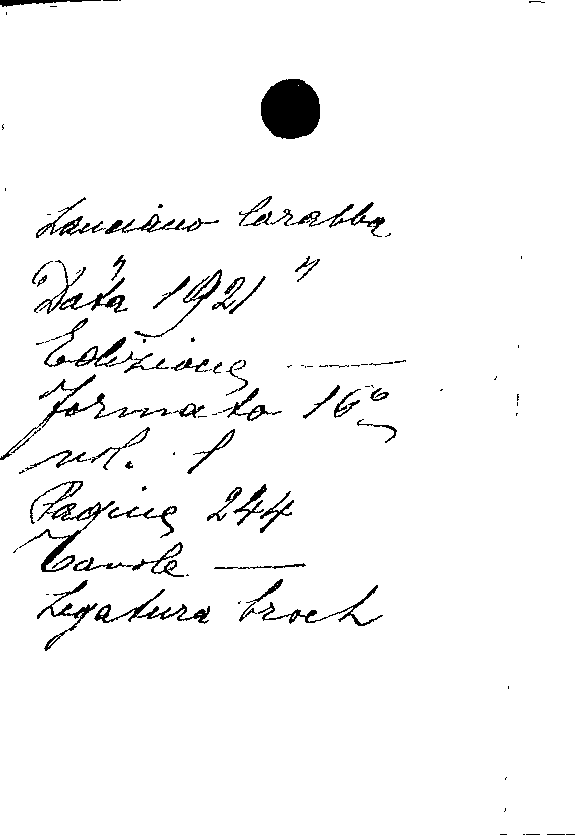 Lanciano Carabba
" "
Data 1921
Edizione —
formato 16º
vol. 1
Pagine 244
Tavole —
Legatura broch